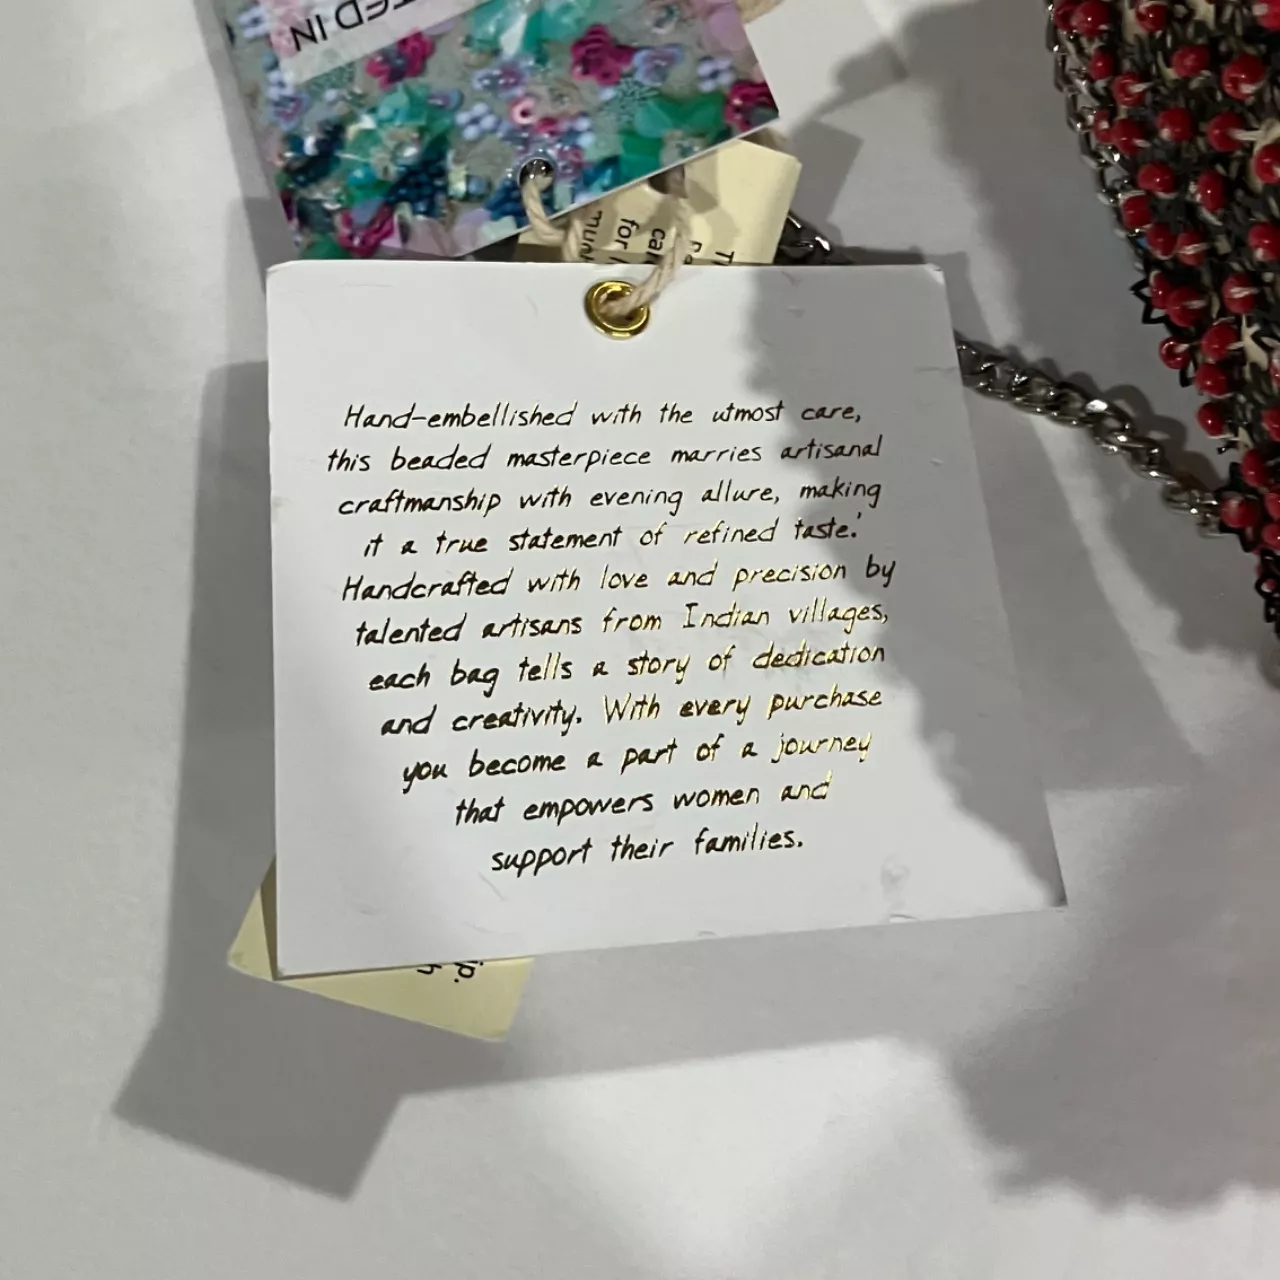 TED IN
for
Hand-embellished with the utmost care,
this beaded masterpiece marries artisanal
craftmanship with evening allure, making
it a true statement of refined taste.'
Handcrafted with love and precision by
talented artisans from Indian villages,
each bag tells a story of dedication
and creativity. With every purchase
you become a part of a journey
that empowers women and
support their families.